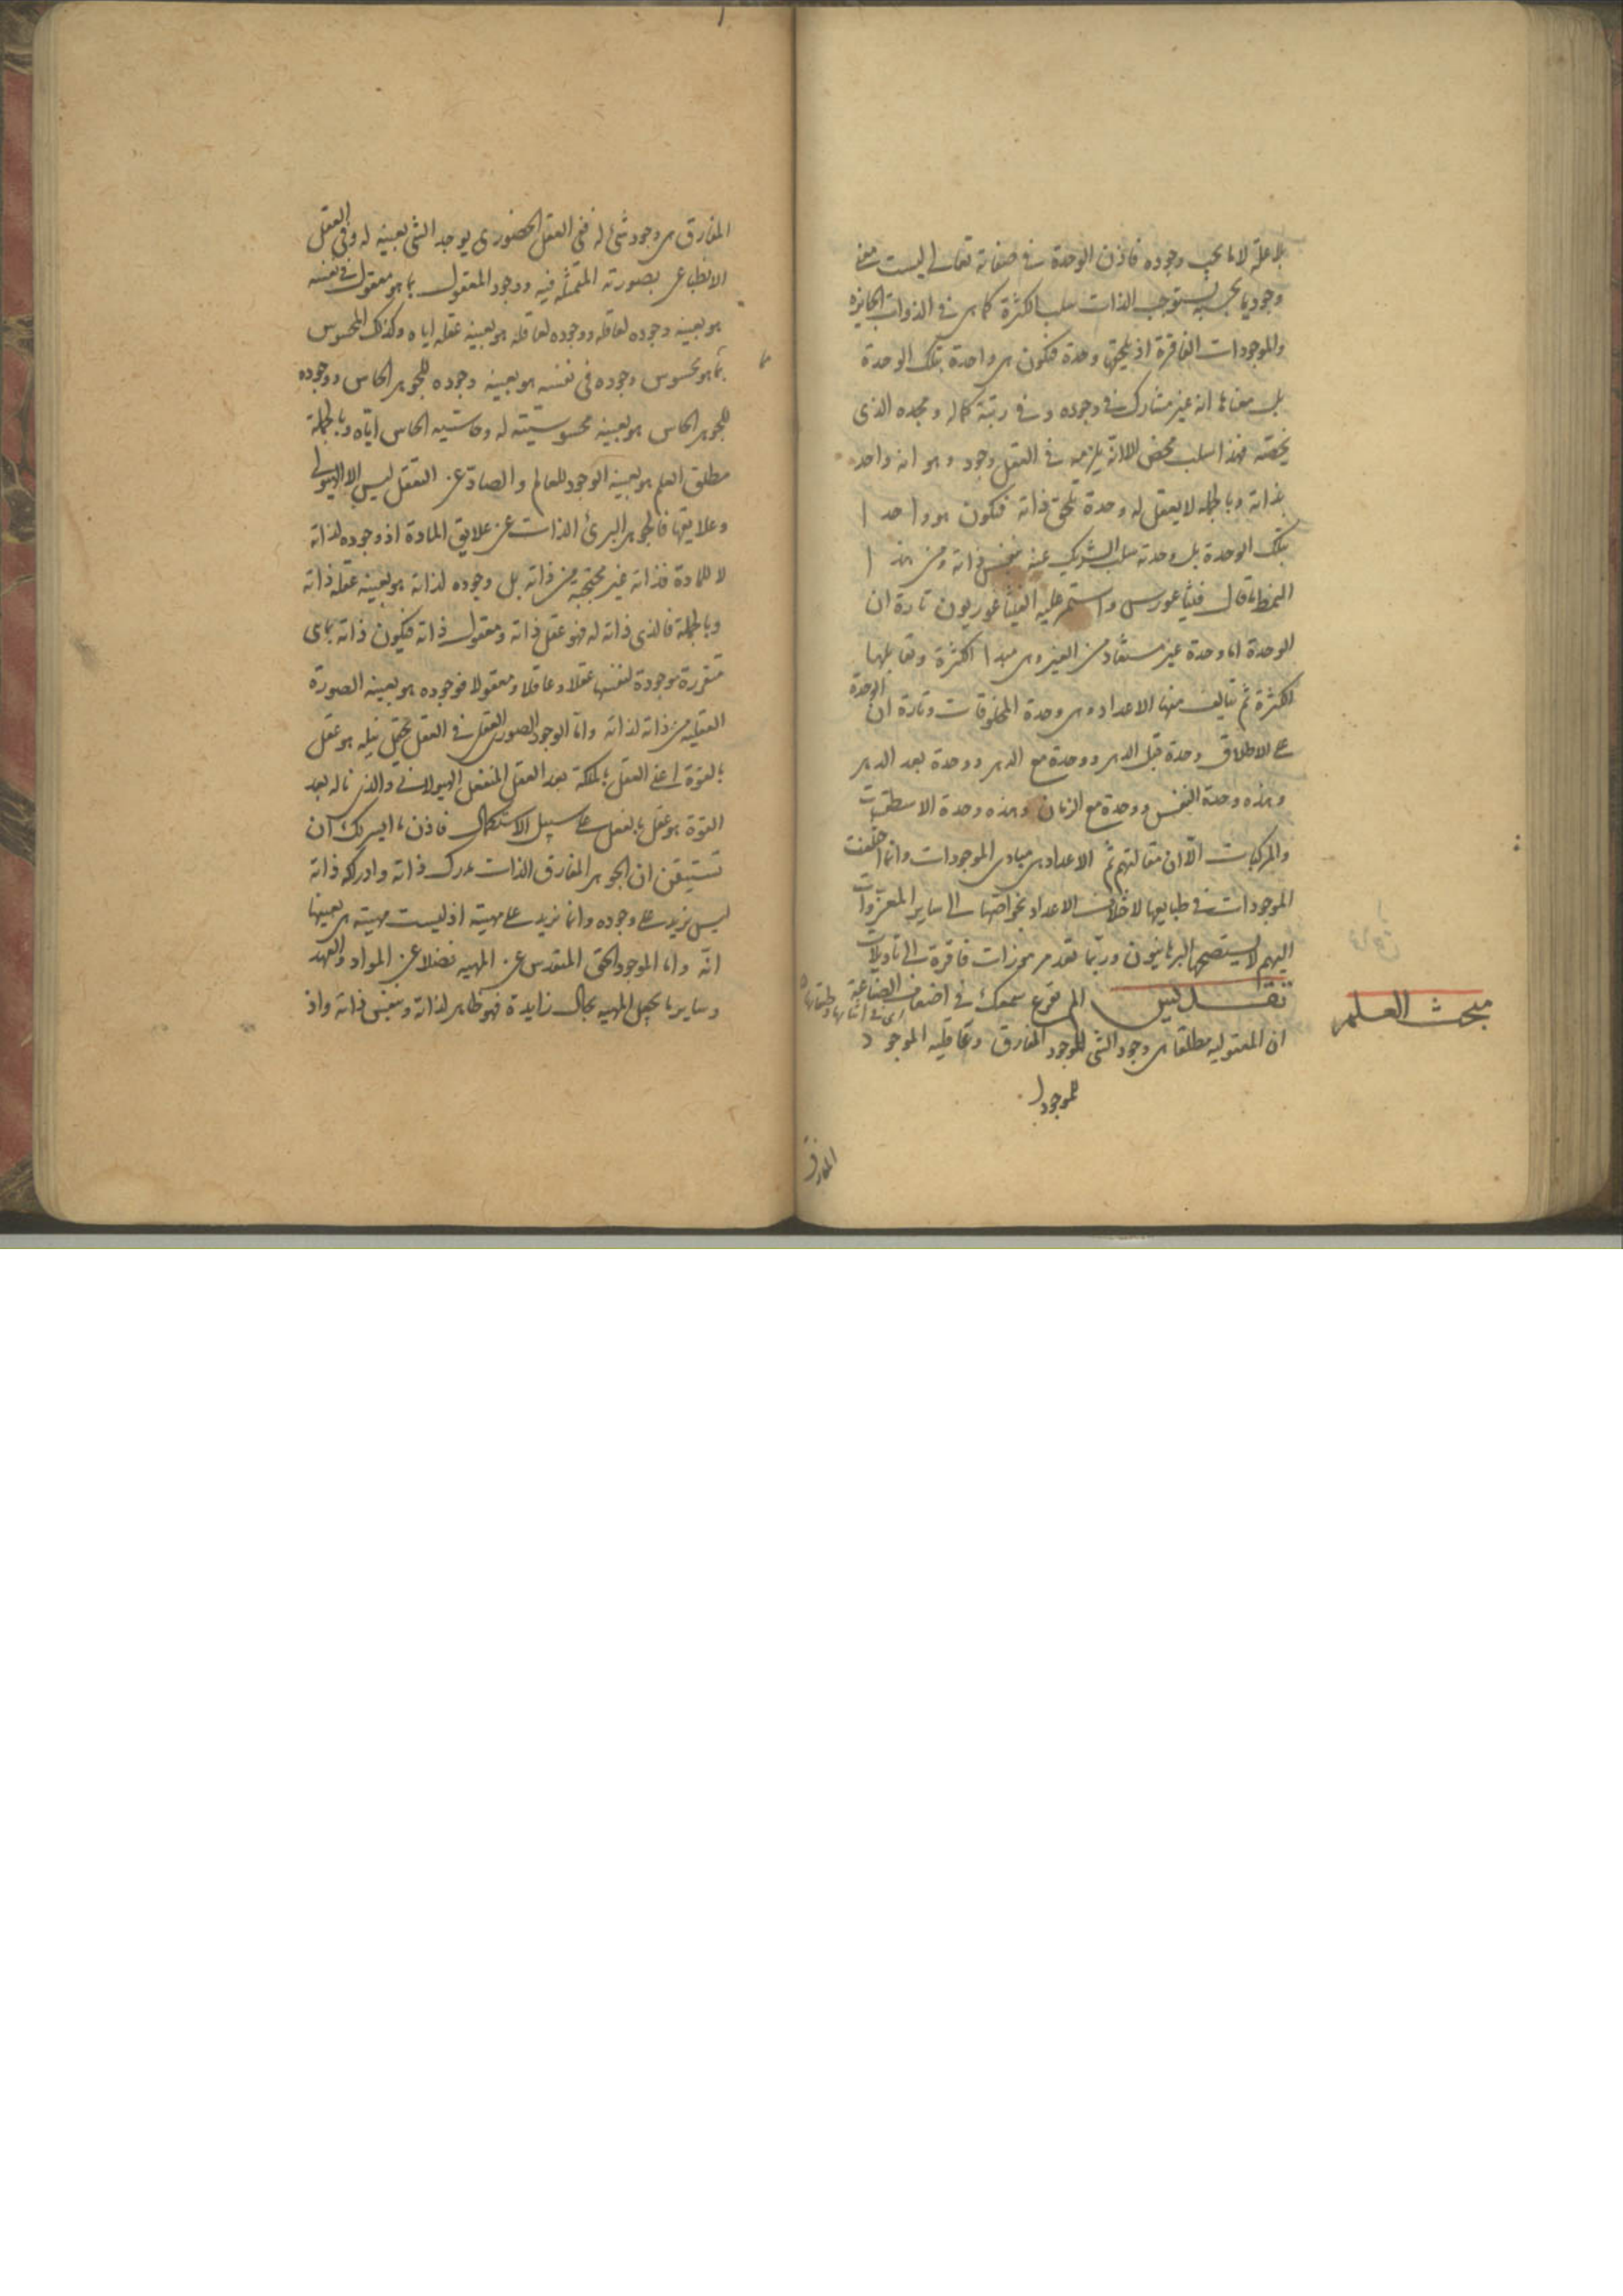 بلا علة لا ما يجب وجوده فاذن الوحدة في صفاته تعالى ليست معنى
وجوديا بحسبه يستوجب الذات سلب الكثرة كما هي في الذوات الجايزة
والموجودات الفاقرة اذ يلحقها وحدة فتكون هي واحدة بتلك الوحدة
بل معناها انه غير مشارك في وجوده وفي رتبة كماله ومجده الذي
يخصه فهذا سلب محض الا انه يلزمه في العقل وجود وهو انه واحد
بذاته وبالجملة لا يعقل له وحدة تلحق ذاته فيكون هو واحدا
بتلك الوحدة بل وحدته سلب الشريك عنه بنفس ذاته ومن هذا
النمط ما قال فيثاغورس واستمر عليه الفيثاغوريون تارة ان
الوحدة اما وحدة غير مستفاد من الغير وهي مبدا الكثرة وتقابلها
الكثرة ثم يتالف منها الاعداد وهي وحدة المخلوقات وتارة ان الوحدة
على الاطلاق وحدة قبل الدهر ووحدة مع الدهر ووحدة بعد الدهر
وهذه وحدة النفس ووحدة مع الزمان وهذه وحدة الاسطقسات
والمركبات الا ان مقالتهم ثم الاعداد هي مبادي الموجودات وانما اختلفت
الموجودات في طبايعها لاختلاف الاعداد بخواصها الى ساير المعزوات
اليهم لا يستصحها البرهانيون وربما تعد مرموزات فاقرة الى تاويلات
تقديس الم يقرع سمعك في اضعاف الصناعة
اي في اثنائها وطبقاتها
مبحث العلم
ان المعقولية مطلقا هي وجود الشي للموجود المفارق وعاقلية الموجود
للموجود
المفارق
المفارق هي وجود شئ له ففي العقل الحضوري يوجد الشي بعينه له وفي العقل
الانطباعي بصورته المتمثلة فيه ووجود المعقول بما هو معقول في نفسه
هو بعينه وجوده لعاقله ووجوده لعاقله هو بعينه عقله اياه وكذلك المحسوس
بما هو محسوس وجوده في نفسه هو بعينه وجوده للجوهر الحاس ووجوده
للجوهر الحاس هو بعينه محسوسيته له وحاسية الحاس اياه وبالجملة
مطلق العلم هو بعينه الوجود للعالم والصاد عن التعقل ليس الا الهيولى
وعلايقها فالجوهر البرئ الذات عن علايق المادة اذ وجوده لذاته
لا للمادة فذاته غير محتجبة من ذاته بل وجوده لذاته هو بعينه عقله ذاته
وبالجملة فالذي ذاته له فهو عقل ذاته ومعقول ذاته فيكون ذاته بما هي
متقررة موجودة لنفسها عقلا وعاقلا ومعقولا فوجوده هو بعينه الصورة
العقلية من ذاته لذاته واما الوجود الصوري العقلي في العقل يجعل نيله هو عقل
بالقوة اعني العقل بالملكة بعد العقل المنفعل الهيولاني والذي ناله بعد
القوة هو عقل بالفعل على سبيل الاستكمال فاذن ما ايسر لك ان
تستيقن ان الجوهر المفارق الذات مدرك ذاته وادراكه ذاته
ليس يزيد على وجوده وانما يزيد على مهيته اذ ليست مهيته هي بعينها
انه واما الموجود الحق المتقدس عن المهية فضلا عن المواد والعهد
وساير ما يجعل المهية بحال زايدة فهو ظاهر لذاته وبنفس ذاته واذ